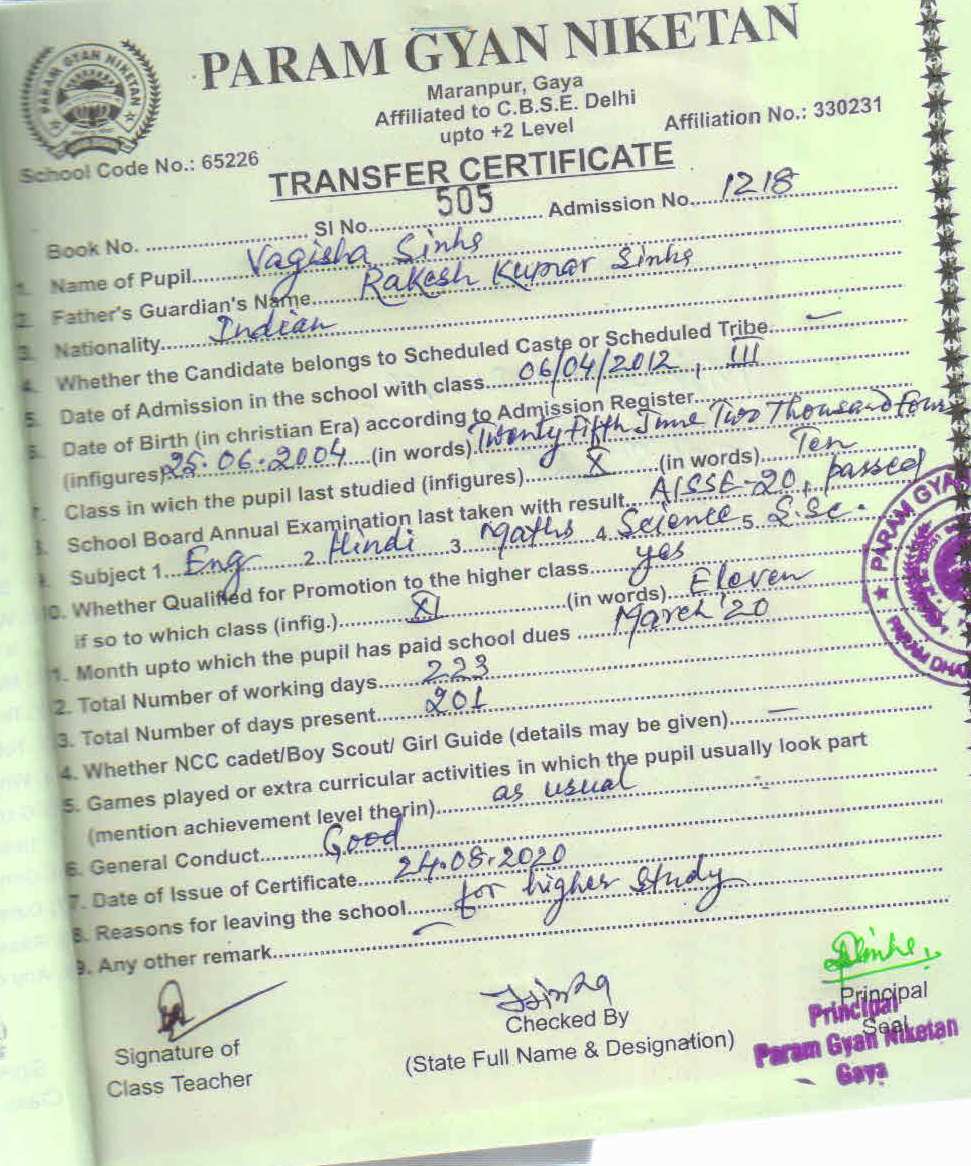 PARAM GYAN NIKETAN
Maranpur, Gaya
Affiliated to C.B.S.E. Delhi
upto +2 Level
Affiliation No.: 330231
School Code No.: 65226
TRANSFER CERTIFICATE
Book No. .................... Sl No. 505 Admission No. 1218
1. Name of Pupil Vagisha Sinha
2. Father's Guardian's Name Rakesh Kumar Sinha
3. Nationality Indian
4. Whether the Candidate belongs to Scheduled Caste or Scheduled Tribe. —
5. Date of Admission in the school with class 06/04/2012, III
6. Date of Birth (in christian Era) according to Admission Register
(infigures) 25.06.2004 (in words) Twenty fifth June Two Thousand four
7. Class in wich the pupil last studied (infigures) X (in words) Ten
8. School Board Annual Examination last taken with result AISSE-20, passed
9. Subject 1. Eng 2. Hindi 3. Maths 4. Science 5. S.Sc.
10. Whether Qualified for Promotion to the higher class yes
if so to which class (infig.) XI (in words) Eleven
1. Month upto which the pupil has paid school dues March '20
2. Total Number of working days 223
3. Total Number of days present 201
4. Whether NCC cadet/Boy Scout/ Girl Guide (details may be given) —
5. Games played or extra curricular activities in which the pupil usually look part
(mention achievement level therin) as usual
6. General Conduct Good
7. Date of Issue of Certificate 24.08.2020
8. Reasons for leaving the school for higher study
9. Any other remark —
Signature of
Class Teacher
Checked By
(State Full Name & Designation)
Principal
Seal
Principal
Param Gyan Niketan
Gaya
PARAM GYAN
PARAM DHA
PARAM GYAN NIKETAN